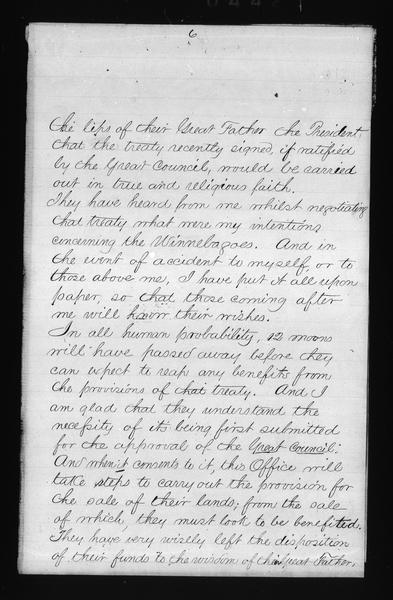 6
the lips of their Great Father the President
that the treaty recently signed, if ratified
by the Great Council, would be carried
out in true and religious faith.
They have heard from me whilst negotiating
that treaty what were my intentions
concerning the Winnebagoes. And in
the event of accident to myself, or to
those above me, I have put it all upon
paper, so that those coming after
me will know their wishes.
In all human probability, 12 moons
will have passed away before they
can expect to reap any benefits from
the provisions of that treaty. And I
am glad that they understand the
necessity of its being first submitted
for the approval of the Great Council;
And when it consents to it, this Office will
take steps to carry out the provision for
the sale of their lands; from the sale
of which, they must look to be benefited.
They have very wisely left the disposition
of their funds to the wisdom of their Great Father,